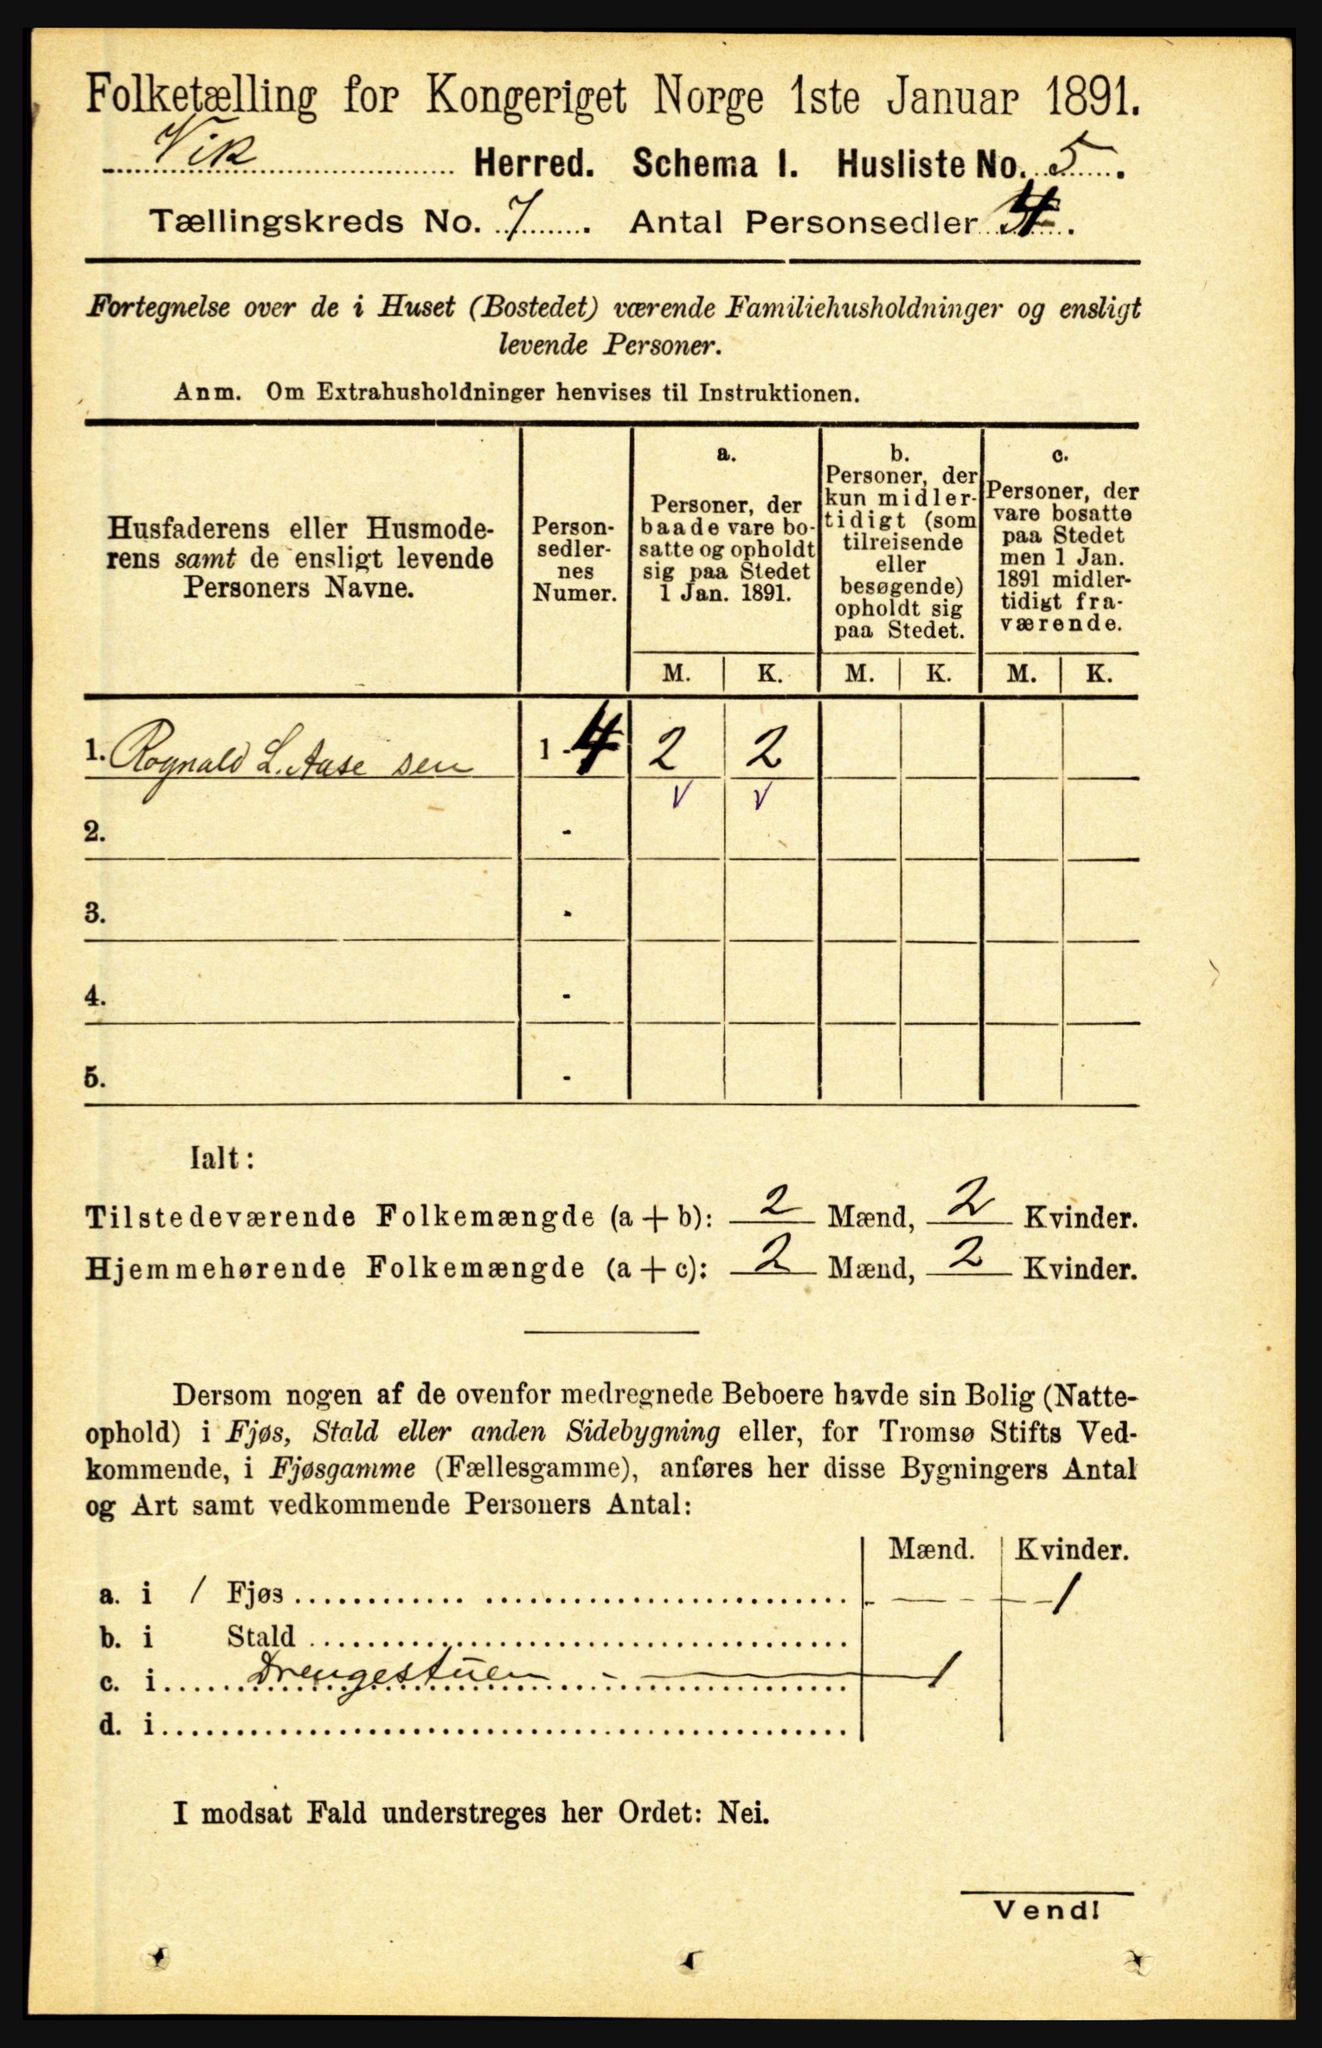 Folketælling for Kongeriget Norge 1ste Januar 1891.
Vik Herred. Schema I. Husliste No. 5.
Tællingskreds No. 7. Antal Personsedler 4.
Fortegnelse over de i Huset (Bostedet) værende Familiehusholdninger og ensligt
levende Personer.
Anm. Om Extrahusholdninger henvises til Instruktionen.
Husfaderens eller Husmode-
rens samt de ensligt levende
Personers Navne.
Person-
sedler-
nes
Numer.
a.
Personer, der
baade vare bo-
satte og opholdt
sig paa Stedet
1 Jan. 1891.
b.
Personer, der
kun midler-
tidigt (som
tilreisende
eller
besøgende)
opholdt sig
paa Stedet.
c.
Personer, der
vare bosatte
paa Stedet
men 1 Jan.
1891 midler-
tidigt fra-
værende.
M. K. M. K. M. K.
1. Rognald L. Aase sen 1 - 4 2 2
2. -
3. -
4. -
5. -
Ialt:
Tilstedeværende Folkemængde (a + b): 2 Mænd, 2 Kvinder.
Hjemmehørende Folkemængde (a + c): 2 Mænd, 2 Kvinder.
Dersom nogen af de ovenfor medregnede Beboere havde sin Bolig (Natte-
ophold) i Fjøs, Stald eller anden Sidebygning eller, for Tromsø Stifts Ved-
kommende, i Fjøsgamme (Fællesgamme), anføres her disse Bygningers Antal
og Art samt vedkommende Personers Antal:
Mænd. Kvinder.
a. i 1 Fjøs - 1
b. i Stald
c. i Drengestuen - 1
d. i
I modsat Fald understreges her Ordet: Nei.
Vend!